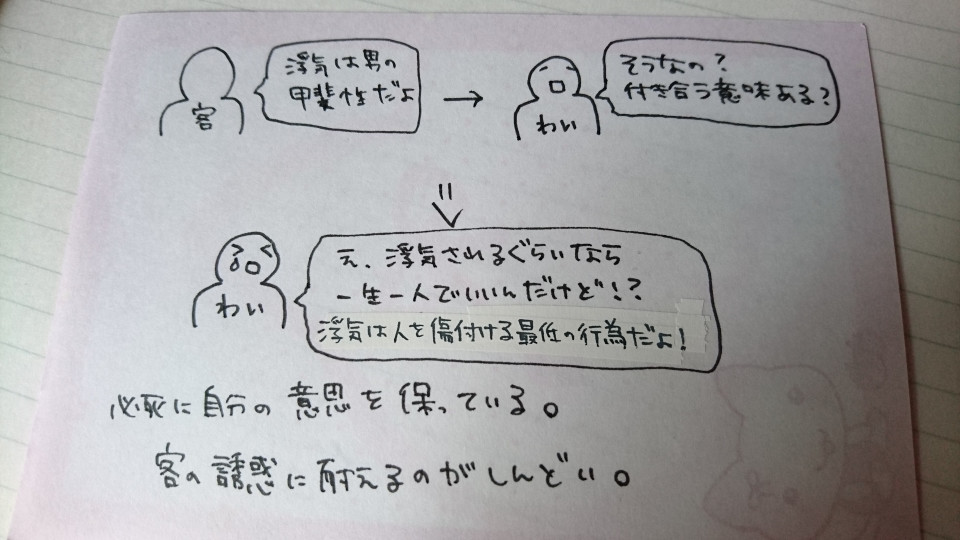 客
浮気は男の
甲斐性だよ
わい
そうなの?
付き合う意味ある?
わい
え、浮気されるぐらいなら
一生一人でいいんだけど!?
浮気は人を傷付ける最低の行為だよ!
必死に自分の意思を保っている。
客の誘惑に耐えるのがしんどい。